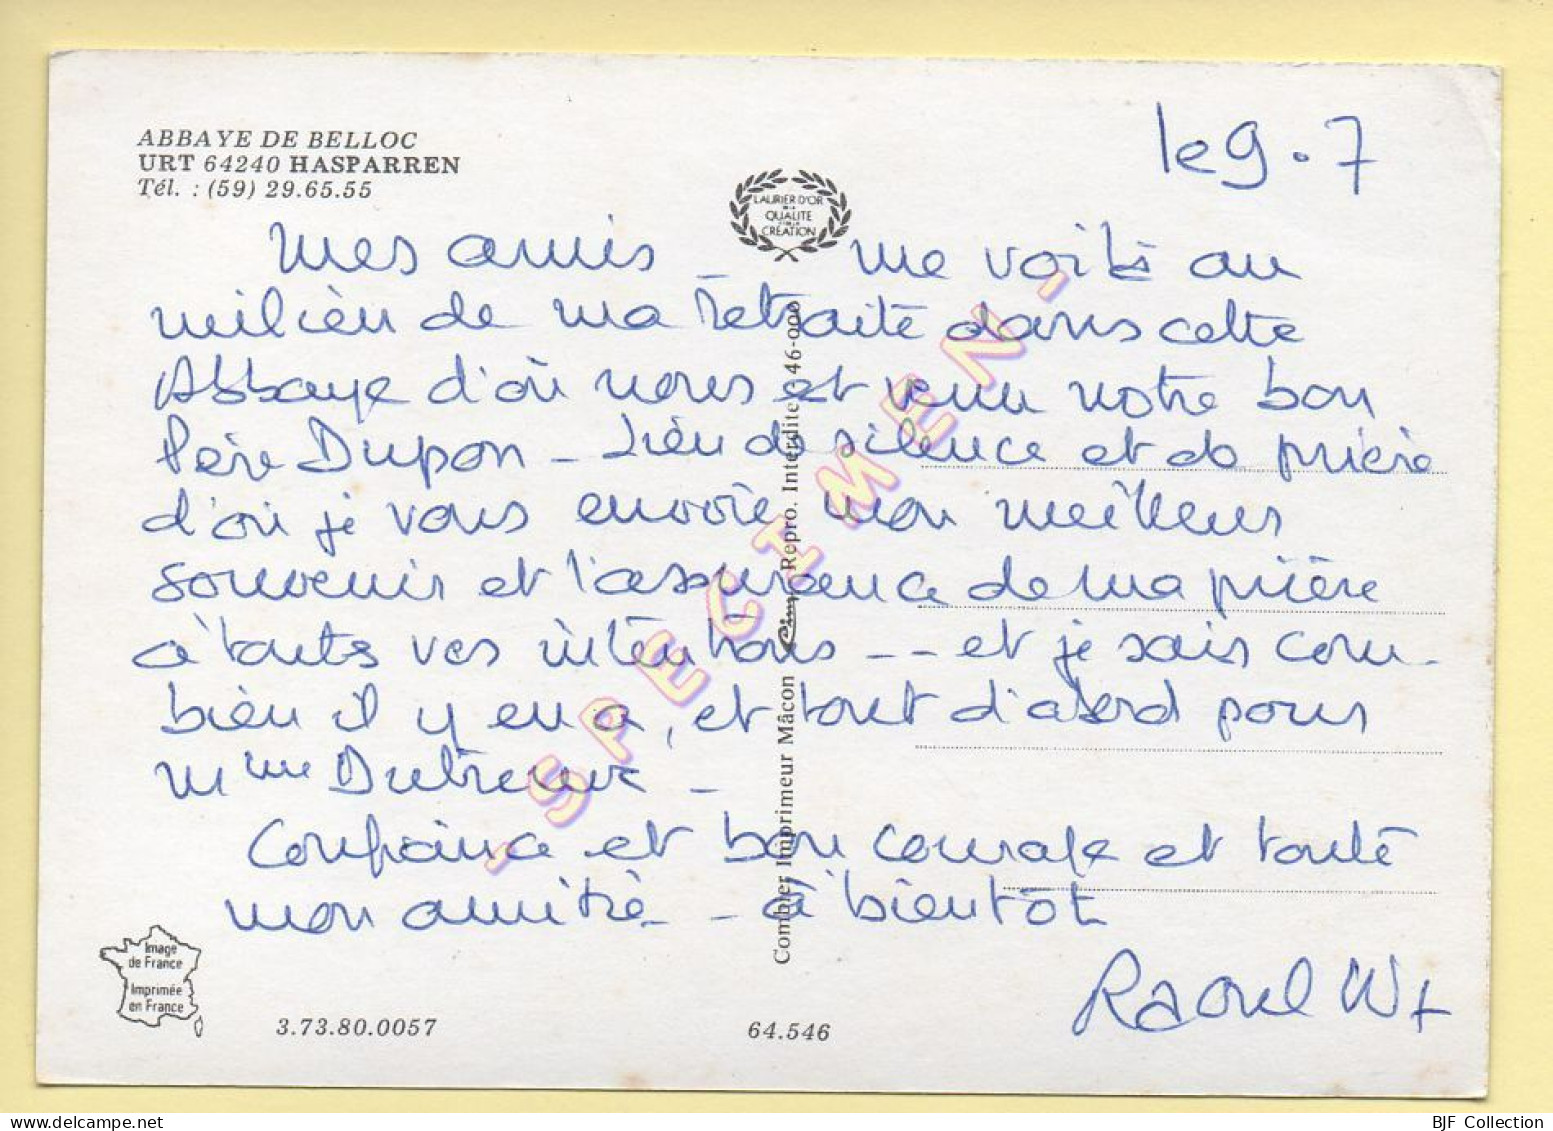 ABBAYE DE BELLOC
URT 64240 HASPARREN
Tél. : (59) 29.65.55
LAURIER D'OR
DE LA
QUALITE
ET DE LA
CRÉATION
le 9.7
Mes amis - me voilà au
milieu de ma retraite dans cette
Abbaye d'où nous est venu notre bon
Père Dupon - Lieu de silence et de prière
d'où je vous envoie mon meilleur
souvenir et l'assurance de ma prière
à toutes vos intentions -- et je sais com-
bien il y en a, et tout d'abord pour
Mme Dutreux -
Confiance et bon courage et toute
mon amitié - à bientôt
Raoul
Combier Imprimeur Mâcon Cim Repro. Interdite 46-000
- SPECIMEN -
Image
de France
Imprimée
en France
3.73.80.0057
64.546
BJF Collection